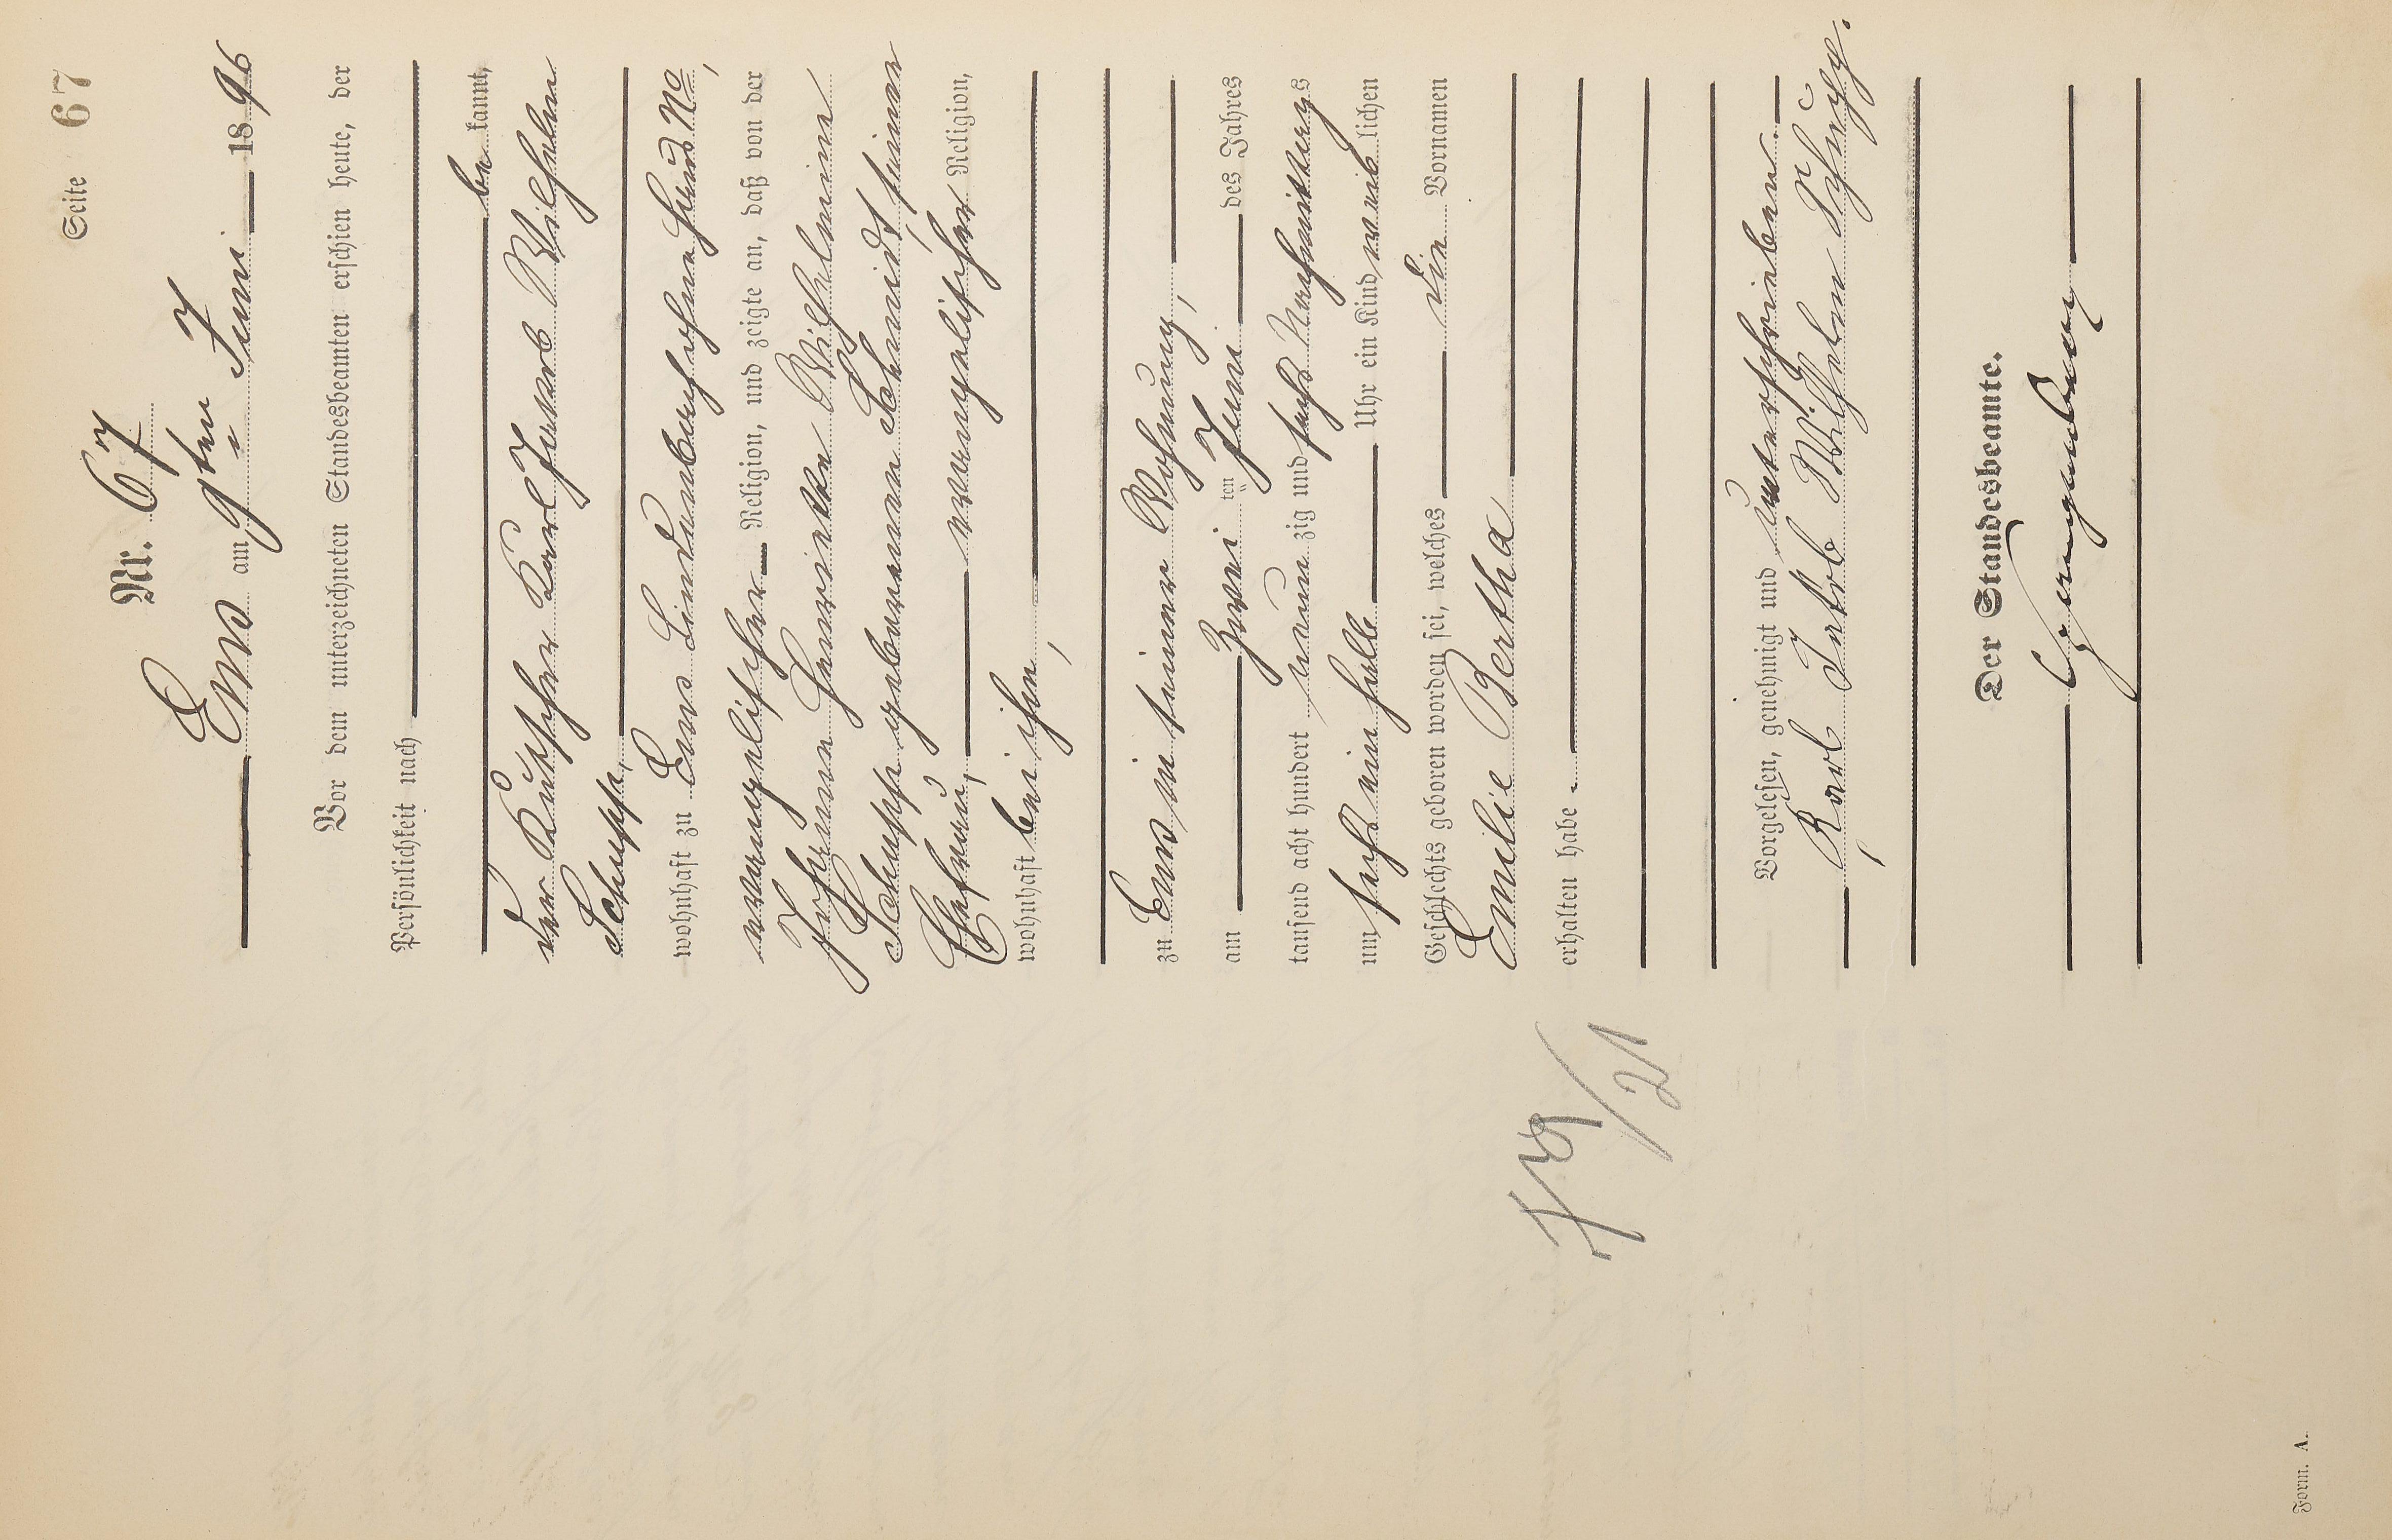 Seite 67
Nr. 67
Ems am 9ten Juni 1896
Vor dem unterzeichneten Standesbeamten erschien heute, der
Persönlichkeit nach
be kannt,
der Kutscher Karl Jakob Wilhelm
Schupp,
wohnhaft zu Ems
evangelischer Religion, und zeigte an, daß von der
Johanna Henriette Wilhelmine
Schupp geborenen Schmidt, seiner
Ehefrau, evangelischer Religion,
wohnhaft bei ihm,
zu Ems in seiner Wohnung,
am zwei ten Juni des Jahres
tausend acht hundert neun zig und sechs Nachmittags
um sechs ein halb Uhr ein Kind weib lichen
Geschlechts geboren worden sei, welches die Vornamen
Emilie Bertha
erhalten habe.
Vorgelesen, genehmigt und unterschrieben.
Karl Jakob Wilhelm Schupp.
Der Standesbeamte.
Form. A.